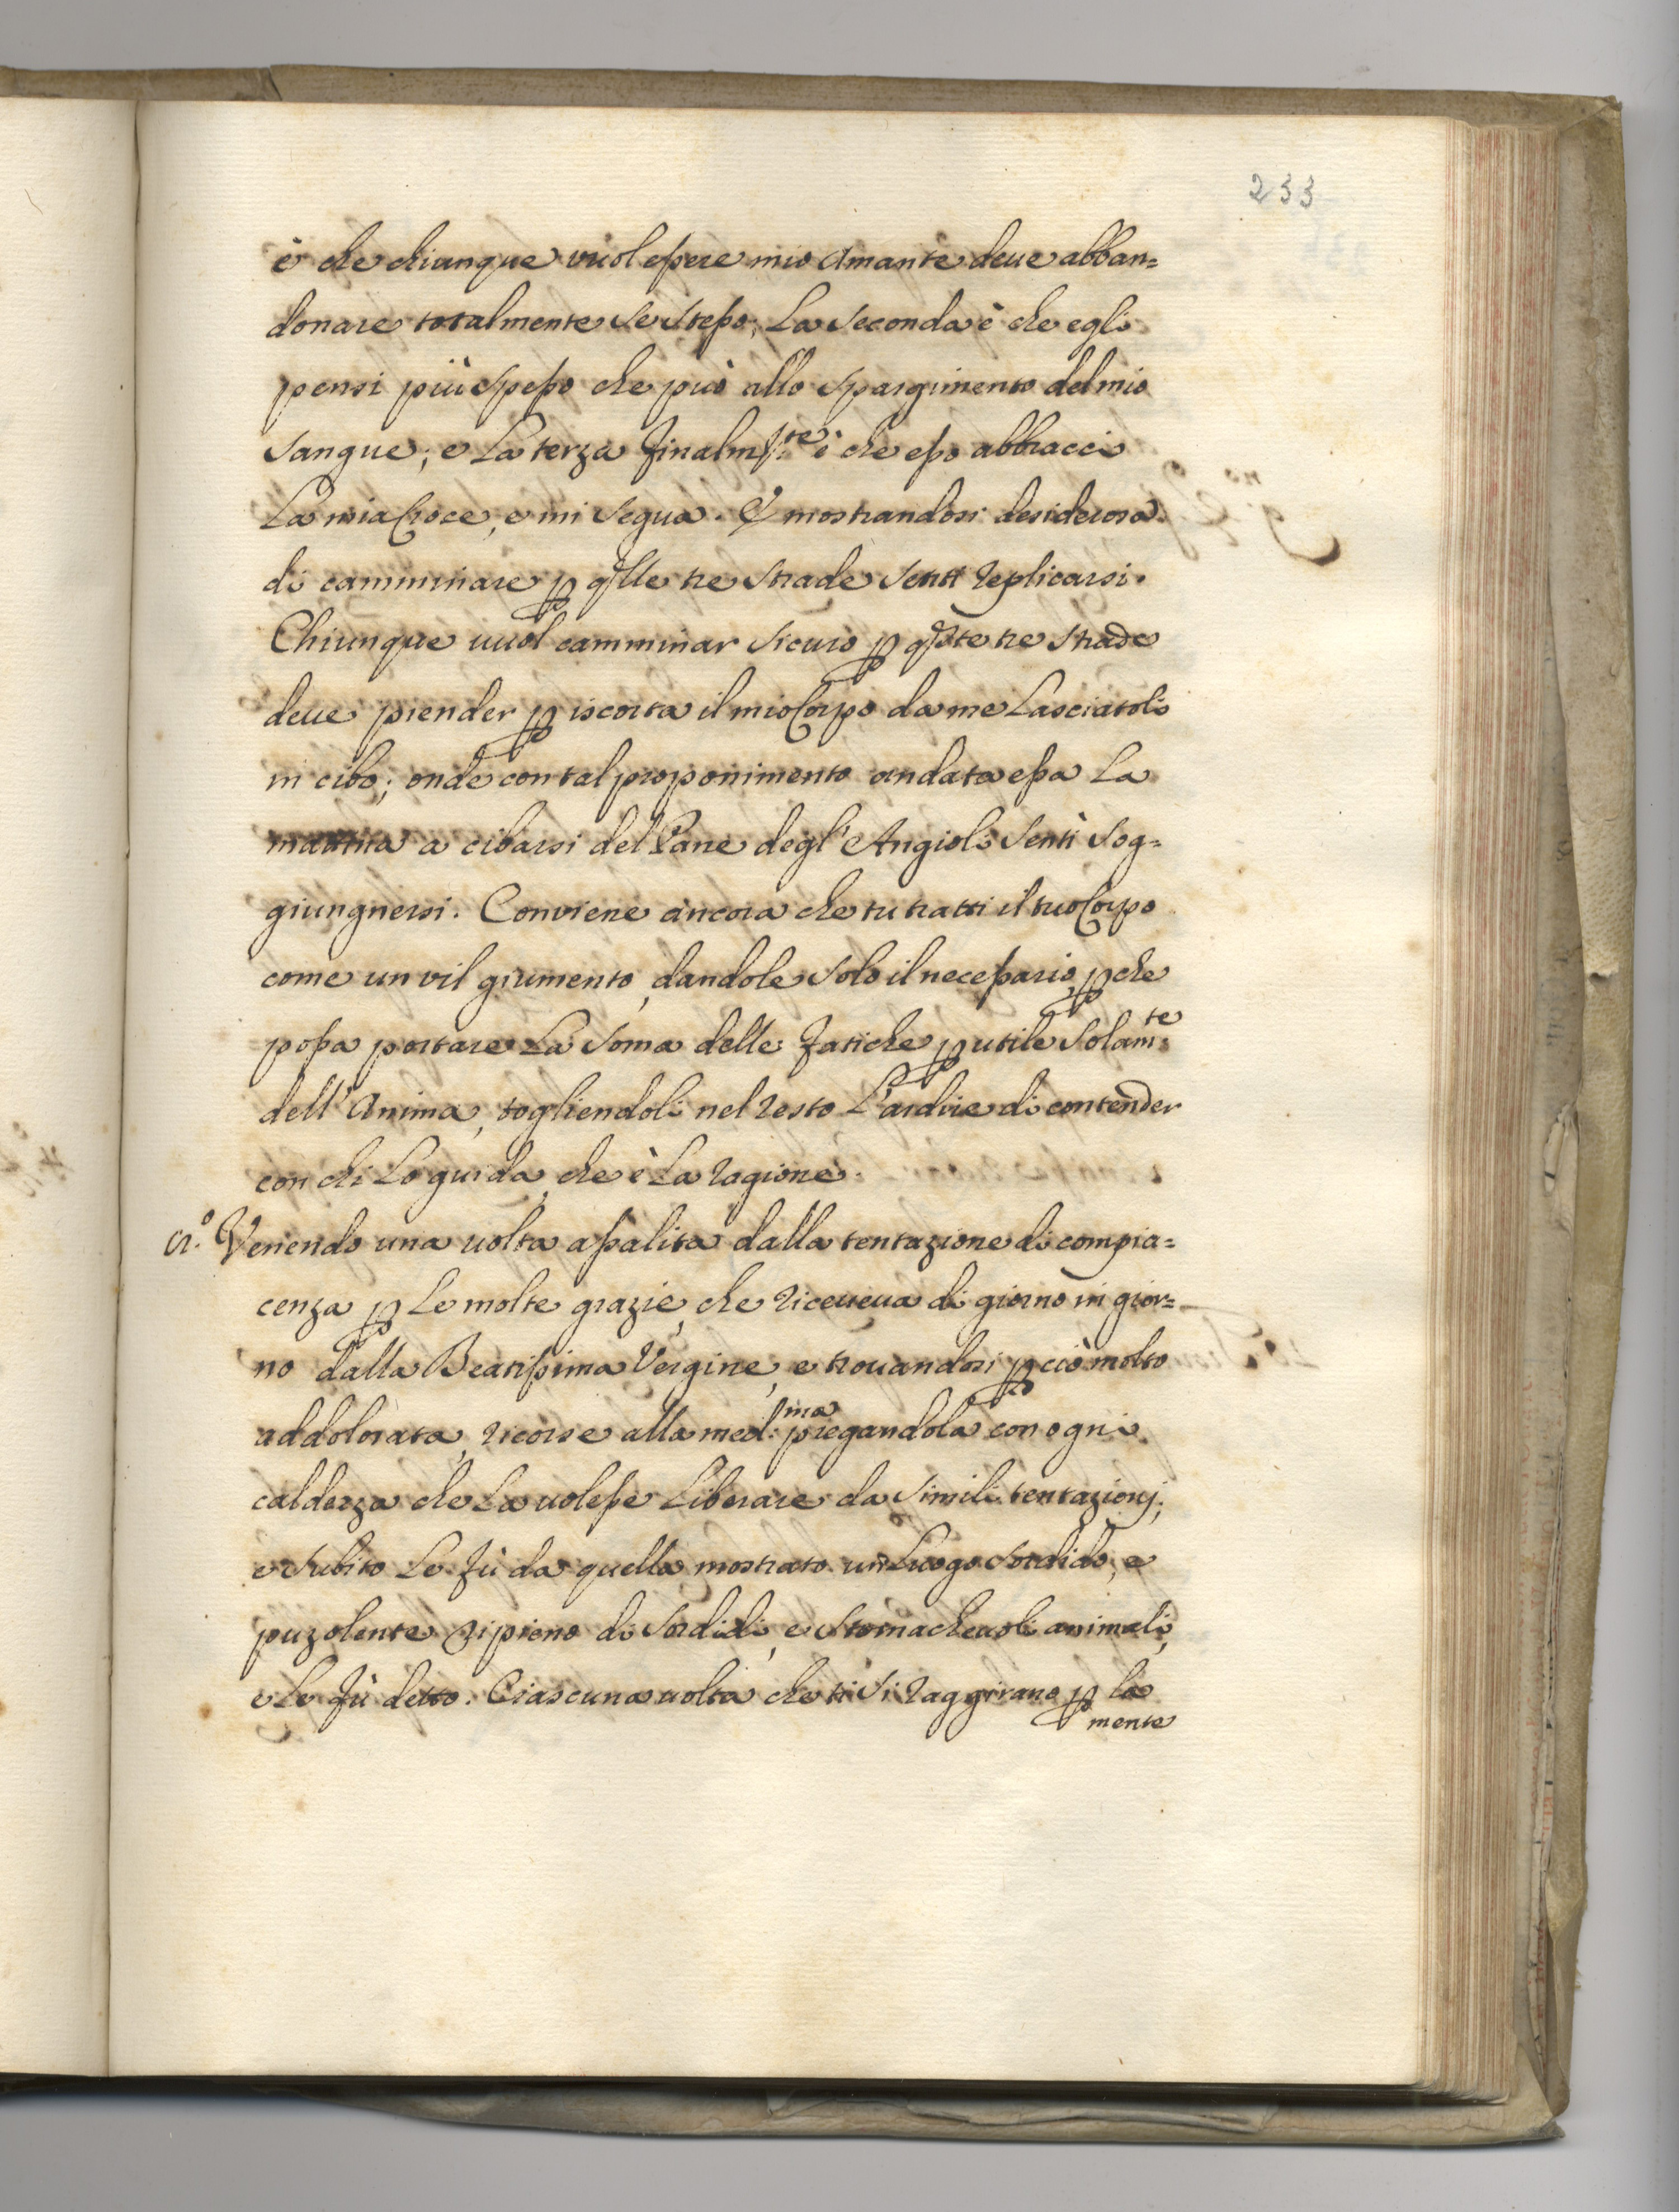 233
è che chiunque vuol essere mio Amante deue abban=
donare totalmente se stesso; La seconda è che egli
pensi più spesso che può allo spargimento del mio
sangue; e La terza finalm.te è che esso abbracci
La mia Croce, e mi segua. E mostrandosi desiderosa
di camminare p qlle tre strade sentì replicarsi.
Chiunque uuol camminar sicuro p qste tre strade
deue prender p iscorta il mio Corpo da me Lasciatoli
in cibo; onde con tal proponimento andata essa La
mattina a cibarsi del Pane degl'Angioli sentì sog=
giungnersi. Conviene ancora che tu tratti il tuo Corpo
come un vil giumento, dandole solo il necessario, pche
possa portare La soma delle fatiche p utile solam:te
dell'Anima, togliendoli nel resto L'ardire di contender
con chi Lo guida, che è La ragione.
Venendo una uolta assalita dalla tentazione di compia=
cenza p Le molte grazie, che riceueua di giorno in gior=
no dalla Beatissima Vergine, e trouandosi p ciò molto
addolorata, ricorse alla med:ma pregandola con ogni
caldezza che La uolesse Liberare da simili tentazionj;
e subito Le fù da quella mostrato un Luogo sordido, e
puzolente ripieno di sordidi, e stomacheuoli animali,
e Le fù detto. Ciascuna uolta che ti si raggirano p la
mente